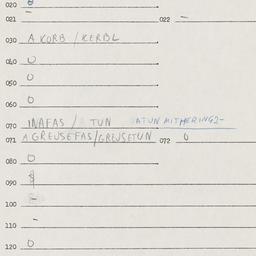 020 0
021 — 022 —
030 A KORB / KERBL
040 0
050 0
060 0
070 INAFAS / TUN
071 A GREUSEFAS/GREUSETUN 072 0
080 0
090
100 -
110 -
120 0